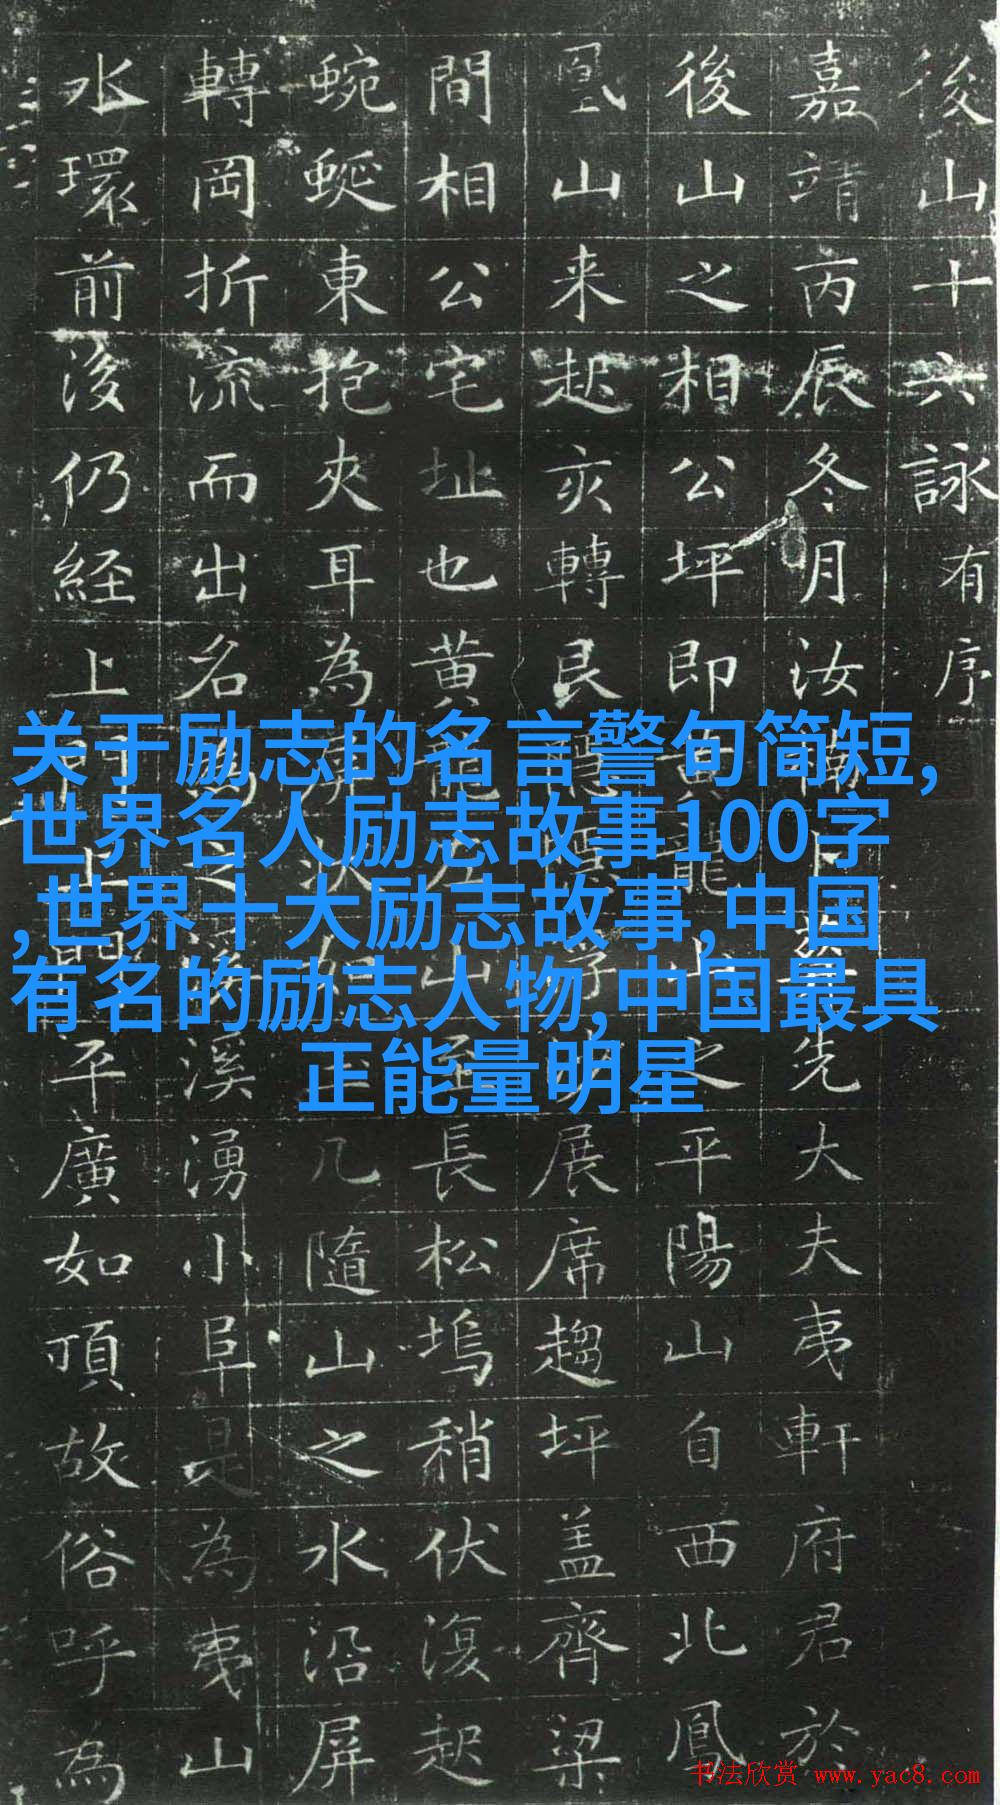 後山十六詠有序
嘉靖丙辰冬月汝卜葬先大夫夷軒府君於
後山之相公坪即黄龍山之平陽山自西北鳳
凰山来起亥轉艮展席趨坪盖齊梁
間相公宅址也黄龍左山長松塢稍伏復起
蜿蜒東抱夾耳為几隨山之水沿屏
轉岡折流而出名為之溪湧小阜是為夷山
水環前後仍経上平廣如頂故俗呼為
关于励志的名言警句简短,
世界名人励志故事100字
,世界十大励志故事,中国
有名的励志人物,中国最具
正能量明星
书法欣赏 www.yac8.com